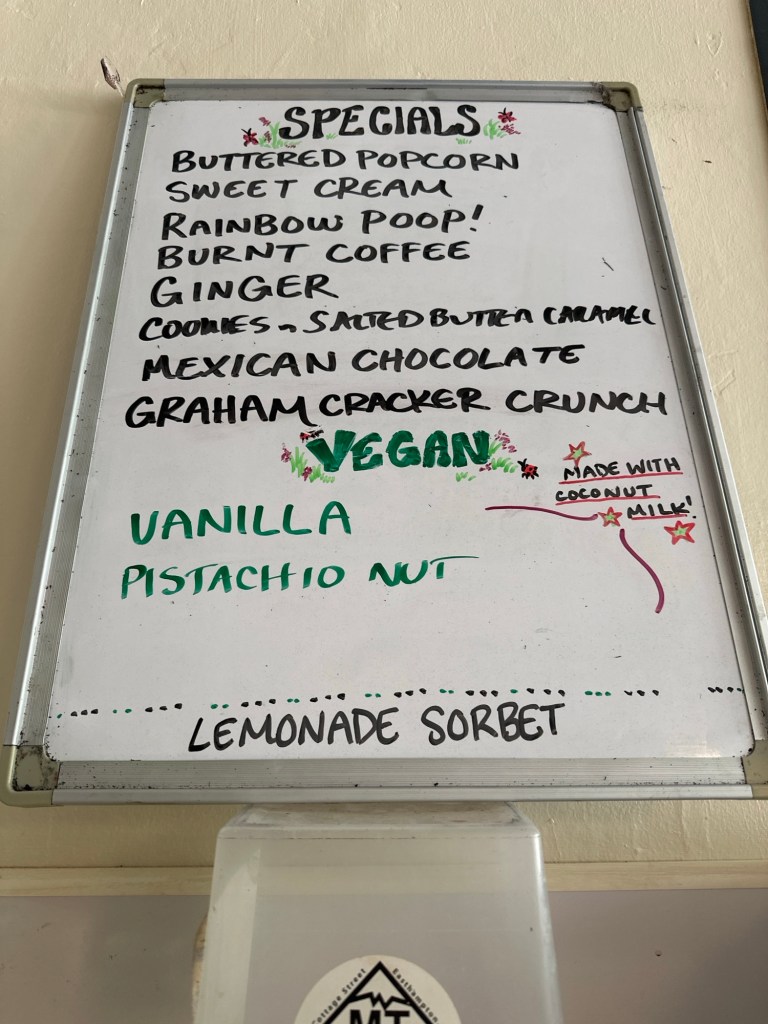 SPECIALS
BUTTERED POPCORN
SWEET CREAM
RAINBOW POOP!
BURNT COFFEE
GINGER
COOKIES n SALTED BUTTER CARAMEL
MEXICAN CHOCOLATE
GRAHAM CRACKER CRUNCH
VEGAN
MADE WITH
COCONUT
MILK!
VANILLA
PISTACHIO NUT
LEMONADE SORBET
Cottage Street
Easthampton
MT